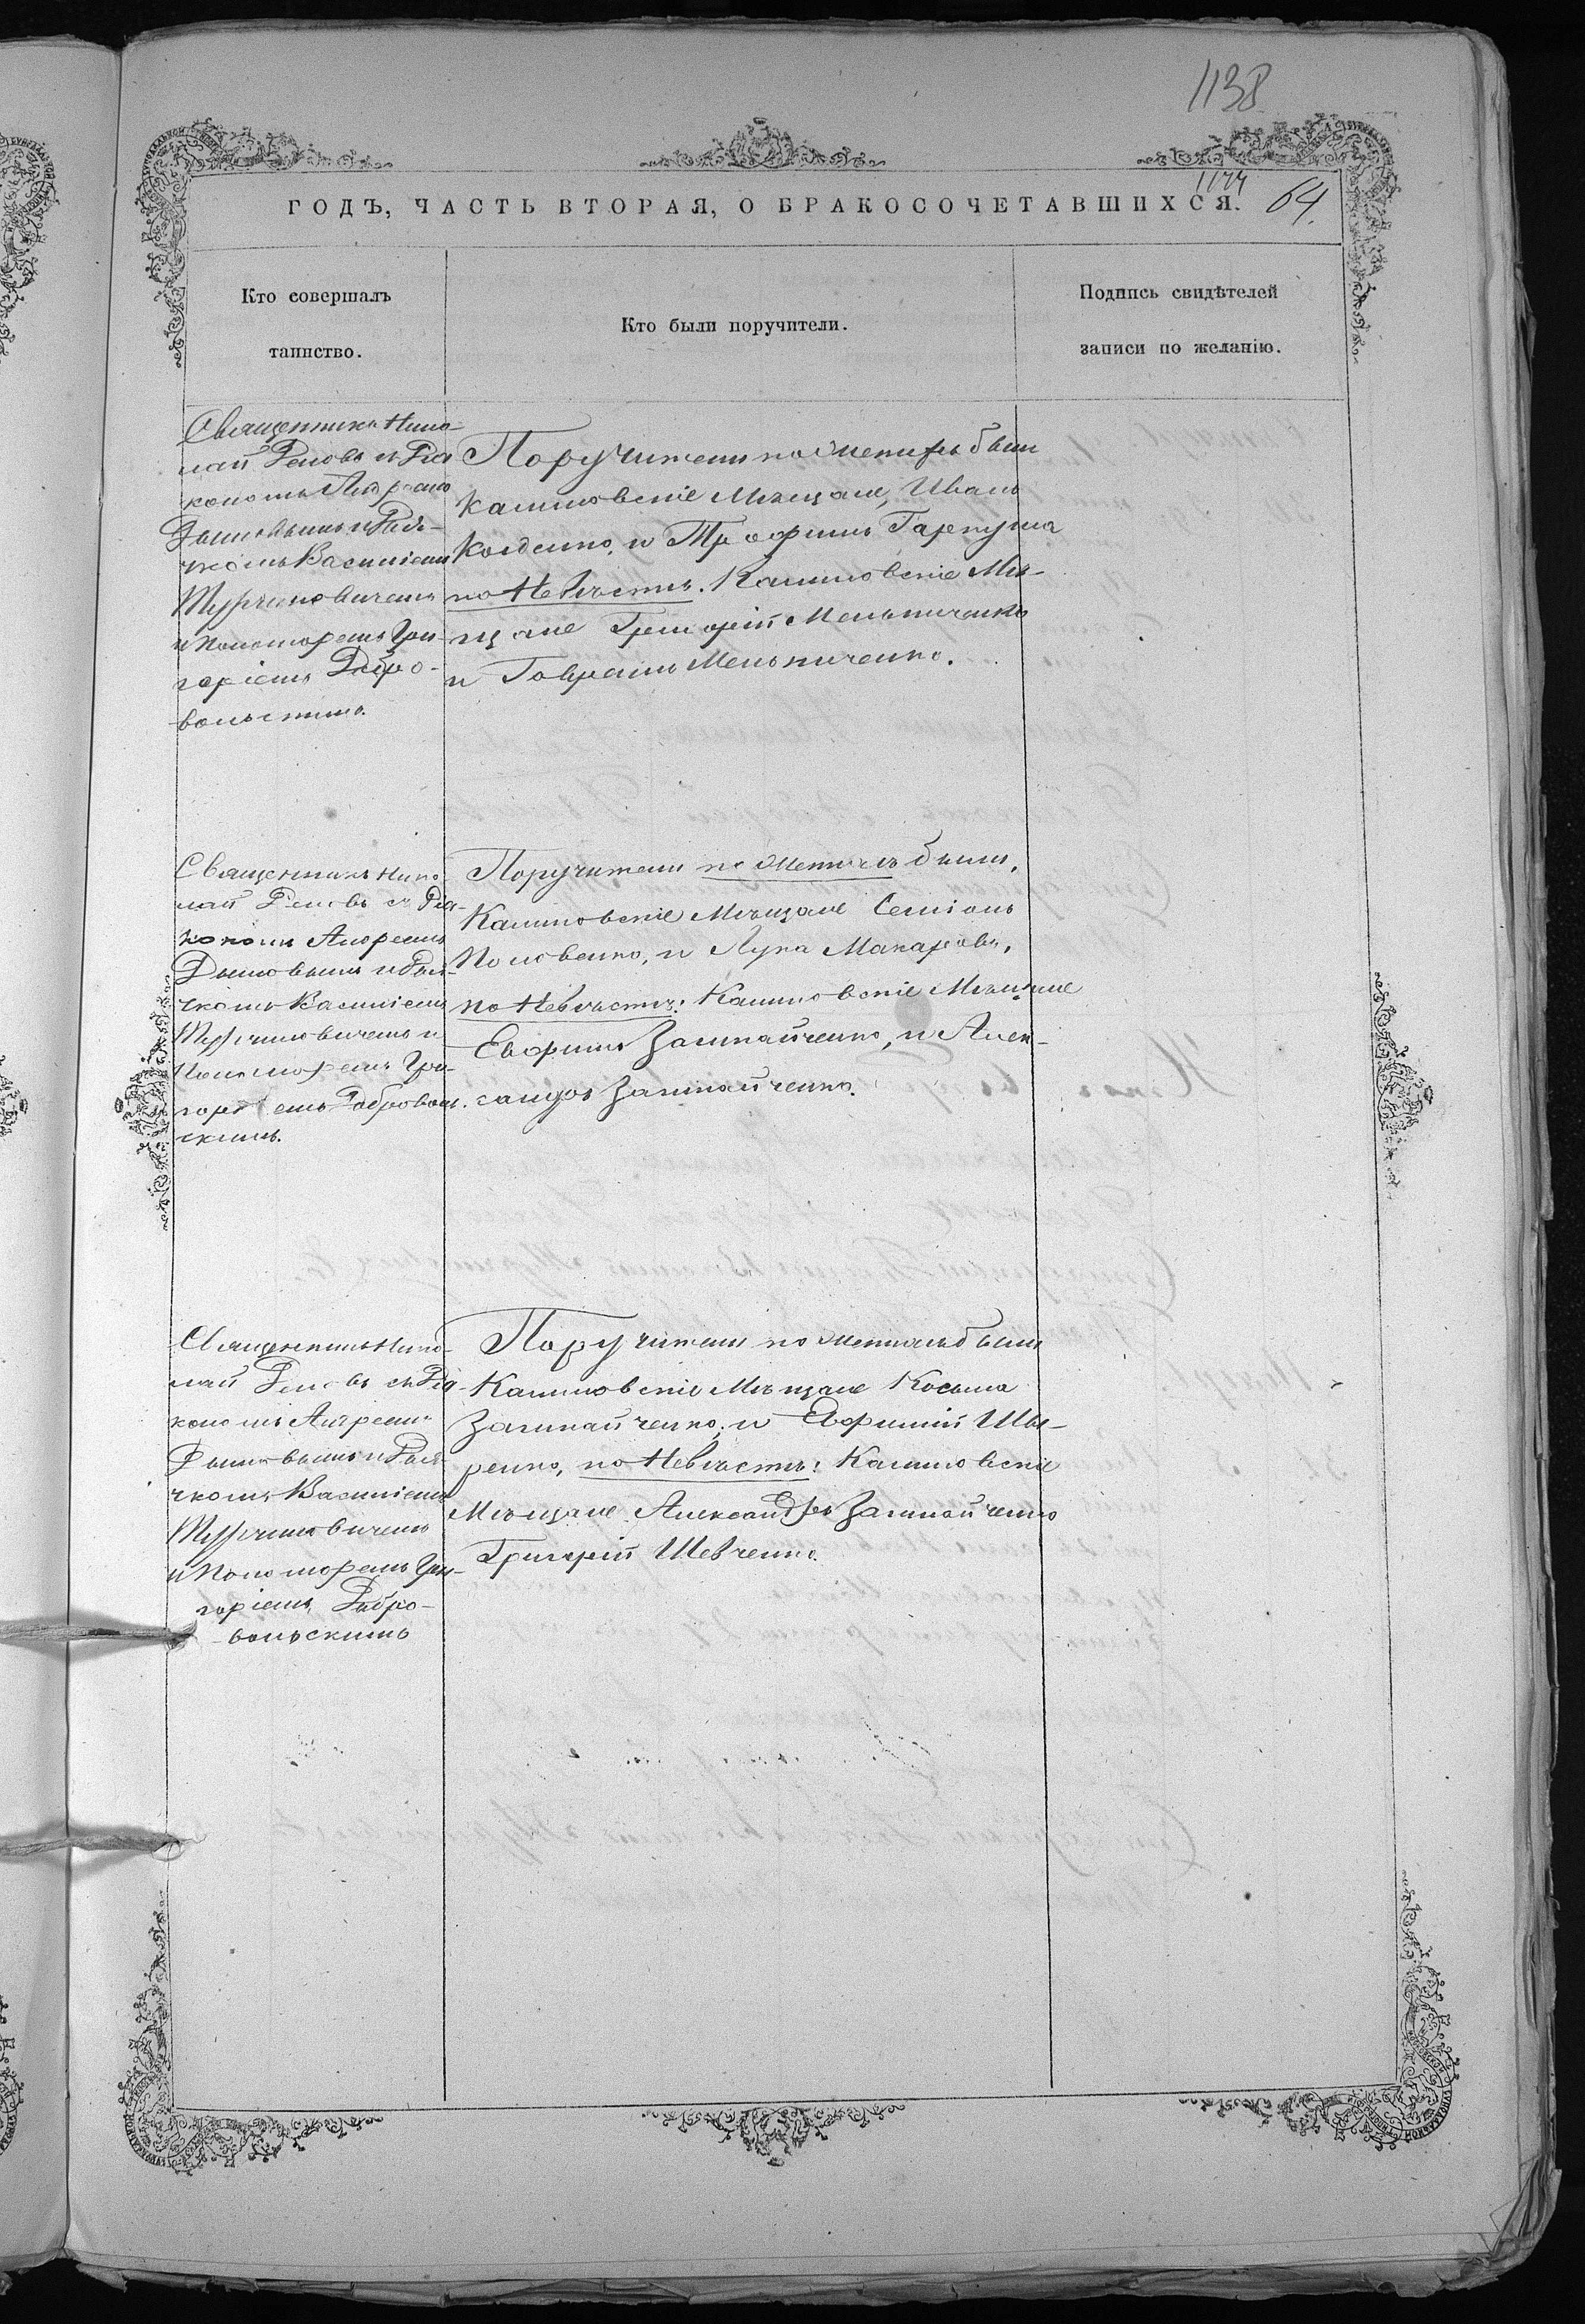 1138
1144
64.
ГОДЪ, ЧАСТЬ ВТОРАЯ, О БРАКОСОЧЕТАВШИХСЯ.
Кто совершалъ
таинство.
Кто были поручители.
Подпись свидѣтелей
записи по желанію.
Священникъ Нико-
лай съ Діа-
кономъ Андреемъ
и Дья-
чкомъ Василіемъ
Турчиновичемъ
и Пономаремъ Гри-
горіемъ Добро-
вольскимъ.
Поручители по Женихѣ были
Калиновскіе Мѣщане, Иванъ
и Трофимъ Гаркуша
по Невѣстѣ. Калиновскіе Мѣ-
щане Григорій Мельниченко
и Гавріилъ Мельниченко.
Священникъ Нико-
лай съ Діа-
кономъ Андреемъ
и Дья-
чкомъ Василіемъ
Турчиновичемъ и
Пономаремъ Гри-
горіемъ Доброволь-
скимъ.
Поручители по Женихѣ были,
Калиновскіе Мѣщане Семіонъ
Половенко, и Лука Макаровъ,
по Невѣстѣ: Калиновскіе Мѣщане
Евфимъ и Алек-
сандръ
Священникъ Нико-
лай съ Діа-
кономъ Андреемъ
и Дья-
чкомъ Василіемъ
Турчиновичемъ
и Пономаремъ Гри-
горіемъ Добро-
вольскимъ
Поручители по Женихѣ были
Калиновскіе Мѣщане Косьма
и Евфимій
по Невѣстѣ: Калиновскіе
Мѣщане Александръ
Григорій Шевченко.